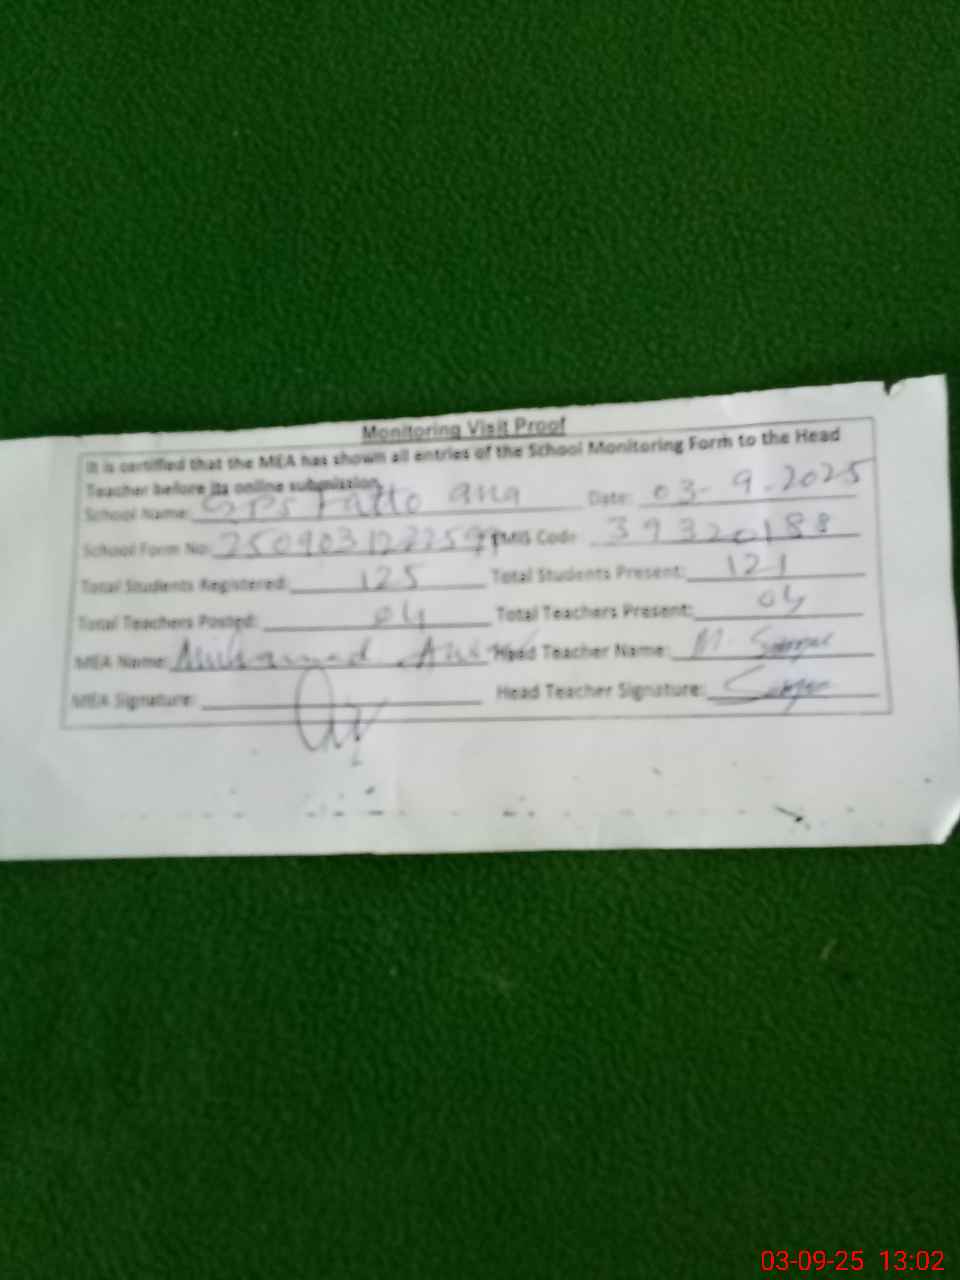 Monitoring Visit Proof
It is certified that the MEA has shown all entries of the School Monitoring Form to the Head
Teacher before its online submission.
School Name: GPS Fatto ana Date: 03-9-2025
School Form No: EMIS Code 39320188
Total Students Registered: 125 Total Students Present: 121
Total Teachers Posted: 04 Total Teachers Present: 04
MEA Name: Muhammad Head Teacher Name: M.
MEA Signature: Head Teacher Signature:
03-09-25 13:02